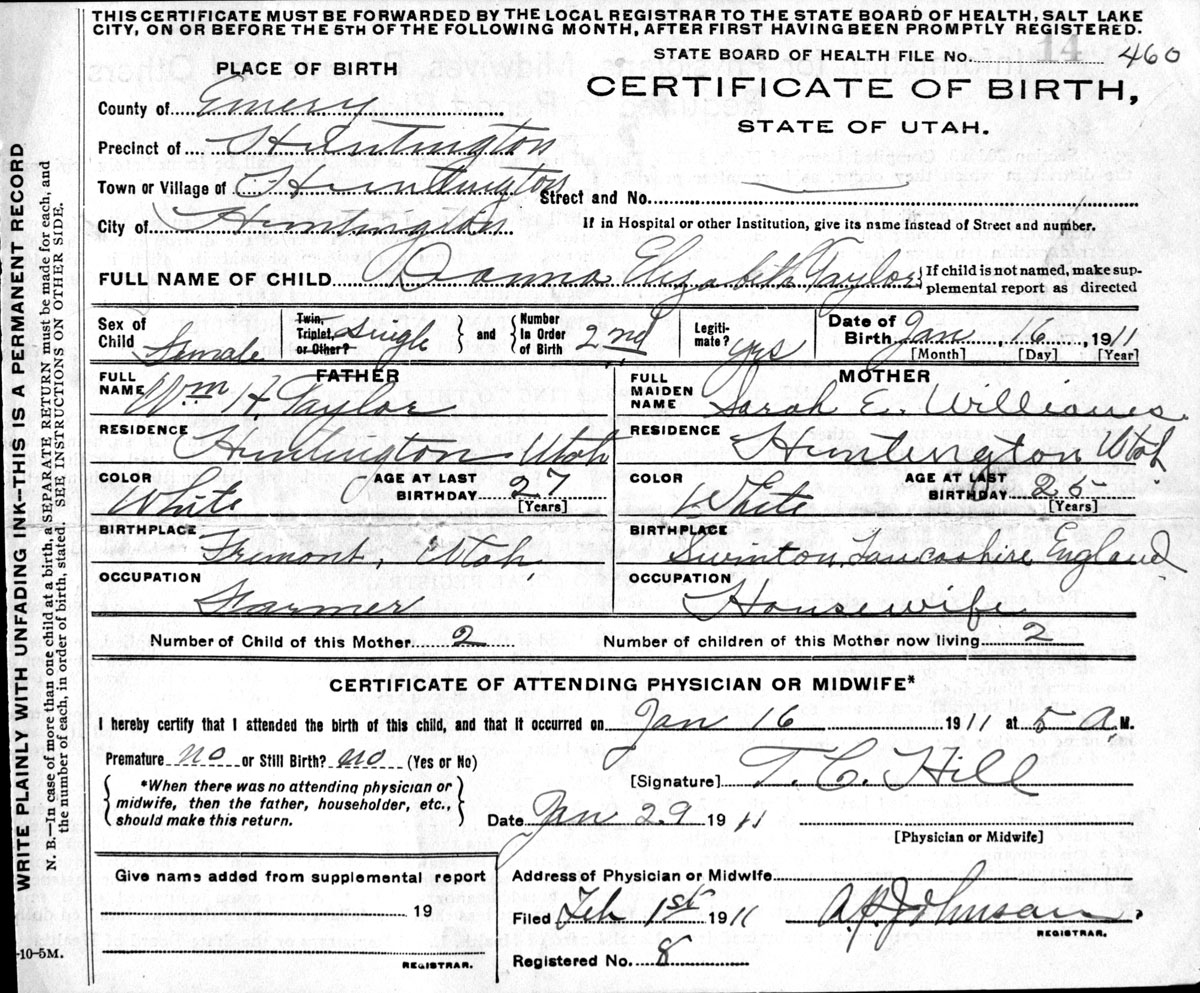 THIS CERTIFICATE MUST BE FORWARDED BY THE LOCAL REGISTRAR TO THE STATE BOARD OF HEALTH, SALT LAKE
CITY, ON OR BEFORE THE 5TH OF THE FOLLOWING MONTH, AFTER FIRST HAVING BEEN PROMPTLY REGISTERED.
STATE BOARD OF HEALTH FILE No. 14 460
PLACE OF BIRTH
CERTIFICATE OF BIRTH,
STATE OF UTAH.
County of Emery
Precinct of Huntington
Town or Village of Huntington Street and No.
City of Huntington If in Hospital or other Institution, give its name instead of Street and number.
FULL NAME OF CHILD Donna Elizabeth Taylor If child is not named, make sup-
plemental report as directed
Sex of Child Female Twin, Triplet, or Other? Single and Number In Order of Birth 2nd Legiti-mate? yes Date of Birth Jan 16, 1911
[Month] [Day] [Year]
FATHER MOTHER
FULL NAME Wm H Taylor FULL MAIDEN NAME Sarah E. Williams
RESIDENCE Huntington Utah RESIDENCE Huntington Utah
COLOR White AGE AT LAST BIRTHDAY 27 [Years] COLOR White AGE AT LAST BIRTHDAY 25 [Years]
BIRTHPLACE Fremont, Utah BIRTHPLACE Swinton, Lancashire England
OCCUPATION Farmer OCCUPATION Housewife
Number of Child of this Mother 2 Number of children of this Mother now living 2
CERTIFICATE OF ATTENDING PHYSICIAN OR MIDWIFE*
I hereby certify that I attended the birth of this child, and that it occurred on Jan 16 1911 at 5 A.M.
Premature no or Still Birth? no (Yes or No)
[Signature] T. C. Hill
*When there was no attending physician or
midwife, then the father, householder, etc.,
should make this return.
Date Jan 29 1911
[Physician or Midwife]
Give name added from supplemental report
19
REGISTRAR.
Address of Physician or Midwife
Filed Feb 1st 1911 Johnson
REGISTRAR.
Registered No. 8
-10-5M.
WRITE PLAINLY WITH UNFADING INK--THIS IS A PERMANENT RECORD
N. B.--In case of more than one child at a birth, a SEPARATE RETURN must be made for each, and
the number of each, in order of birth, stated. SEE INSTRUCTIONS ON OTHER SIDE.